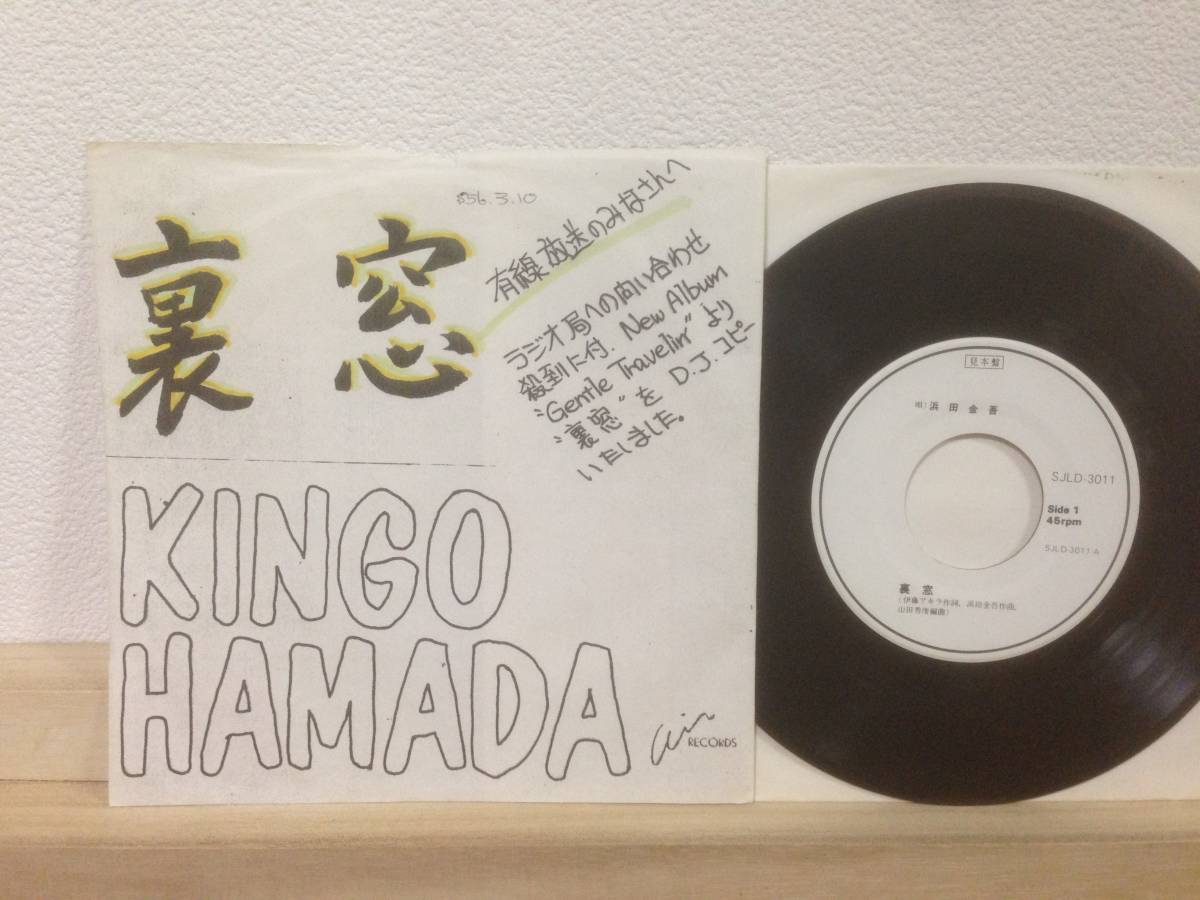 S56.3.10
裏窓
有線放送のみなさんへ
ラジオ局への問い合わせ
殺到に付、New Album
"Gentle Travelin'"より
"裏窓"を D.J.コピー
いたしました。
KINGO
HAMADA
air RECORDS
見本盤
唄:浜田金吾
SJLD-3011
Side 1
45rpm
SJLD-3011-A
裏窓
(伊藤アキラ作詞、浜田金吾作曲、